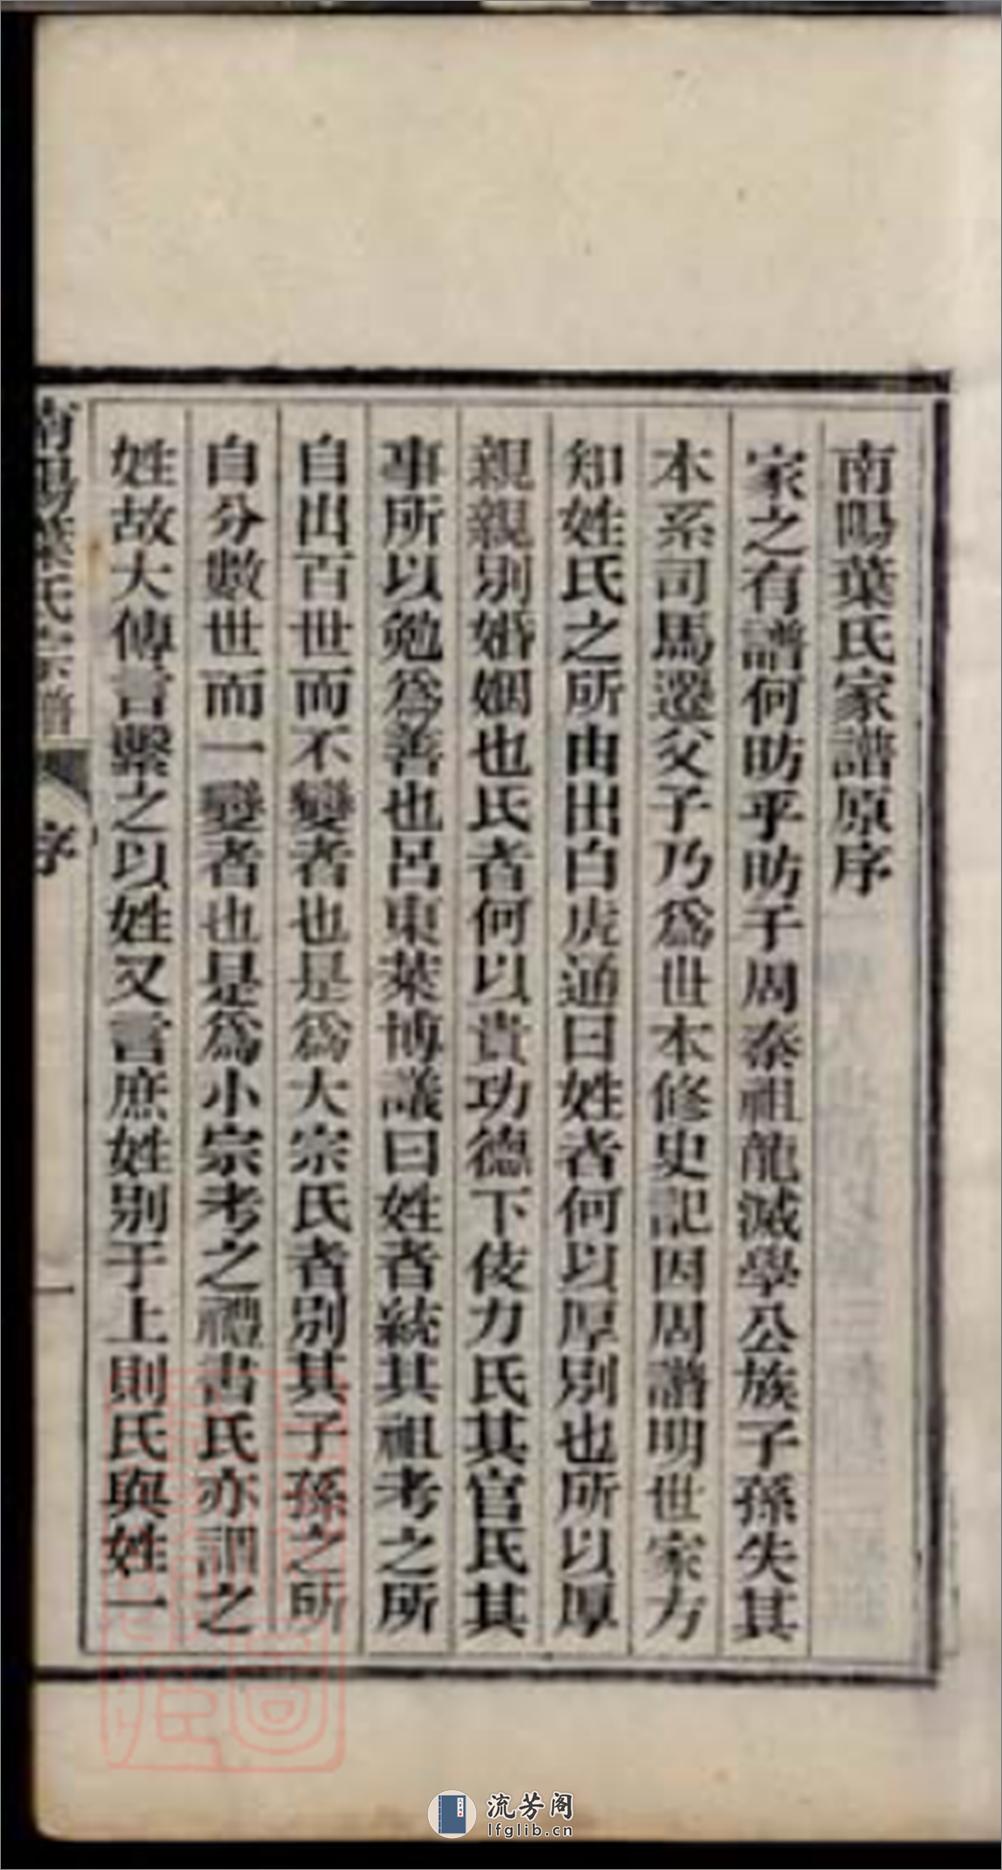 南陽葉氏家譜原序
家之有譜何昉乎昉于周秦祖龍滅學公族子孫失其
本系司馬遷父子乃爲世本修史記因周譜明世家方
知姓氏之所由出白虎通曰姓者何以厚別也所以厚
親親別婚姻也氏者何以貴功德下伎力氏其官氏其
事所以勉爲善也呂東萊博議曰姓者統其祖考之所
自出百世而不變者也是爲大宗氏者別其子孫之所
自分數世而一變者也是爲小宗考之禮書氏亦謂之
姓故大傳言繫之以姓又言庶姓别于上則氏與姓一
南陽葉氏宗譜 序 一
流芳阁
lfglib.cn